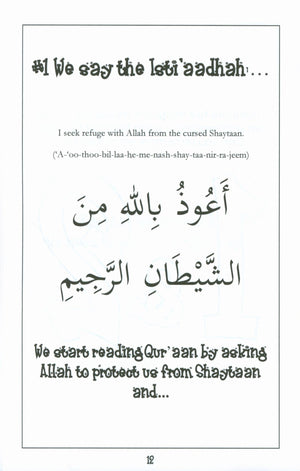 #1 We say the Isti'aadhah...
I seek refuge with Allah from the cursed Shaytaan.
('A-'oo-thoo-bil-laa-he-me-nash-shay-taa-nir-ra-jeem)
أَعُوذُ بِاللهِ مِنَ
الشَّيْطَانِ الرَّجِيمِ
We start reading Qur'aan by asking
Allah to protect us from Shaytaan
and...
12